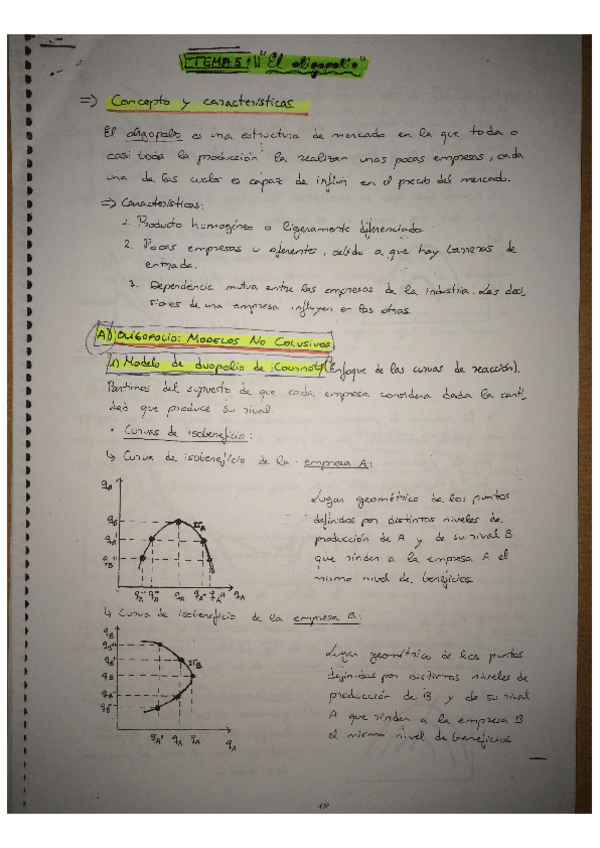 TEMA 5: "El oligopolio"
⇒ Concepto y características
El oligopolio es una estructura de mercado en la que toda o
casi toda la producción la realizan unas pocas empresas, cada
una de las cuales es capaz de influir en el precio del mercado.
⇒ Características:
1. Producto homogéneo o ligeramente diferenciado
2. Pocas empresas u oferentes, debido a que hay barreras de
entrada.
3. Dependencia mutua entre las empresas de la industria. Las deci-
siones de una empresa influyen en las otras
A) OLIGOPOLIO: MODELOS NO COLUSIVOS
1) Modelo de duopolio de Cournot (Enfoque de las curvas de reacción).
Partimos del supuesto de que cada empresa considera dada la canti-
dad que produce su rival.
• Curvas de isobeneficio:
↳ Curva de isobeneficio de la empresa A:
Lugar geométrico de los puntos
definidos por distintos niveles de
producción de A y de su rival B
que rinden a la empresa A el
mismo nivel de beneficios
↳ Curva de isobeneficio de la empresa B:
Lugar geométrico de los puntos
definidos por distintos niveles de
producción de B y de su rival
A que rinden a la empresa B
el mismo nivel de beneficios
18